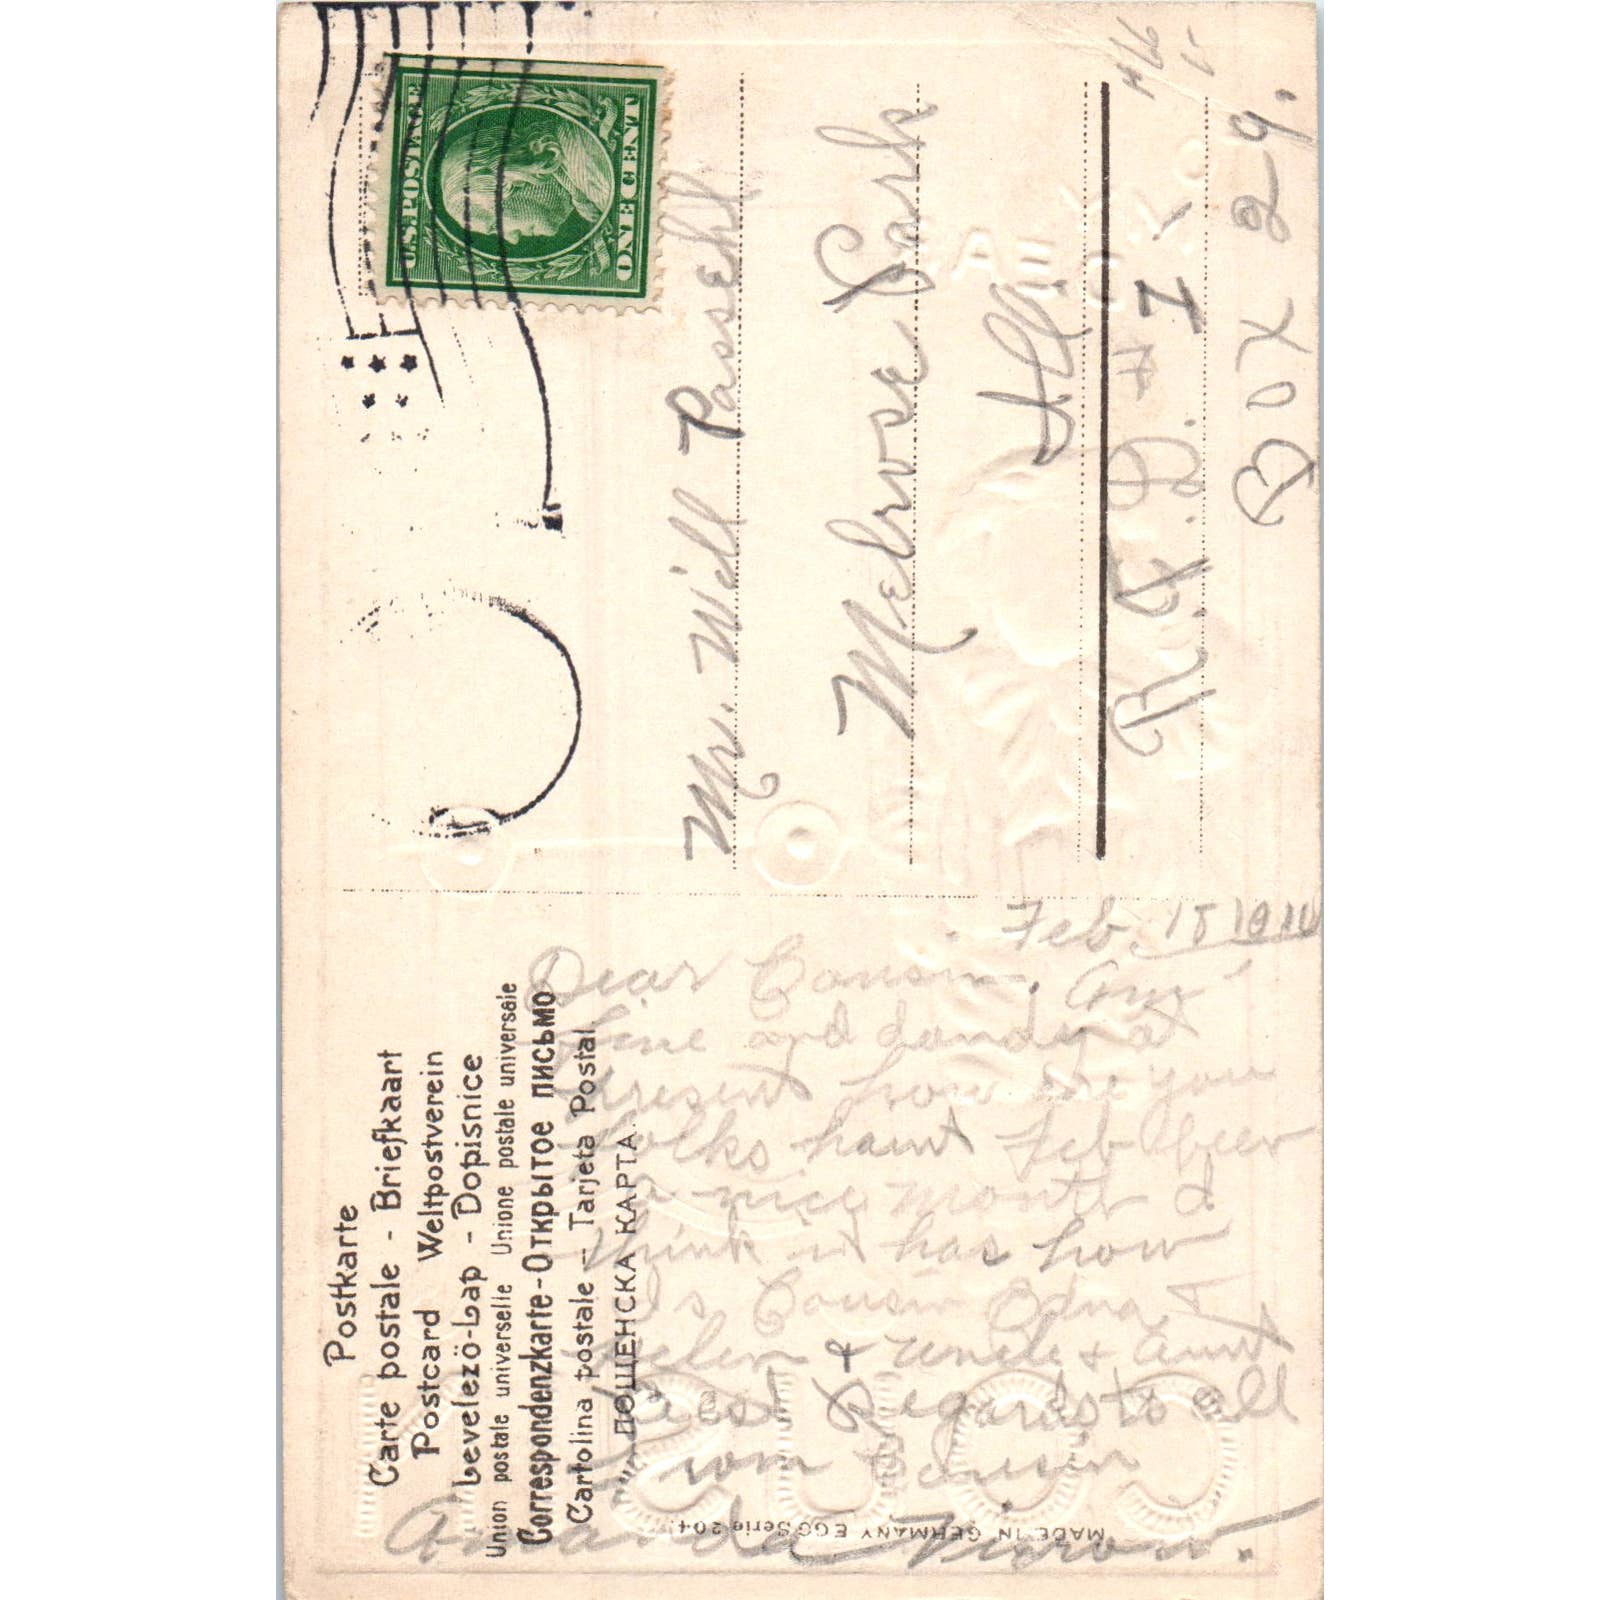 Postkarte
Carte postale - Briefkaart
Postcard Weltpostverein
Levelezö-Lap - Dopisnice
Union postale universelle Unione postale universale
Correspondenzkarte - Открытое письмо
Cartolina postale - Tarjeta Postal
ПОЩЕНСКА КАРТА.
U.S. POSTAGE
ONE CENT
Mr. Will Passehl
Melrose Park
Ill.
R.F.D. # 1
Box 29.
Feb. 15
Dear Cousin. Am
fine and dandy at
present how are you
folks haint Feb been
a nice month I
think it has how
is Cousin Edna &
Helen & Uncle & Aunt
Best Regards to all
from Cousin
Amanda
MADE IN GERMANY EGO Serie 204.